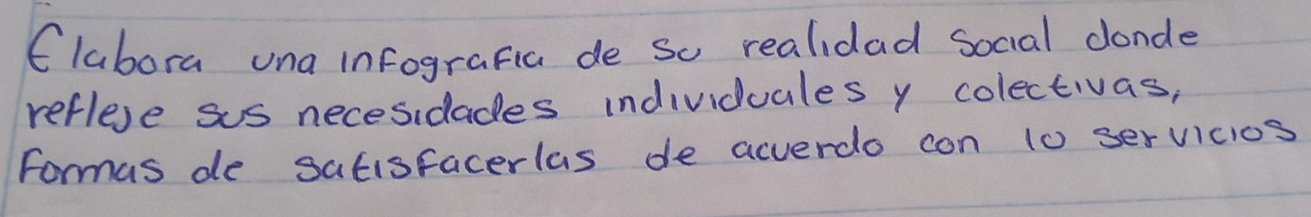 Elabora una infografia de su realidad Social donde
refleje sus necesidades individuales y colectivas,
Formas de satisfacerlas de acuerdo con lo servicios